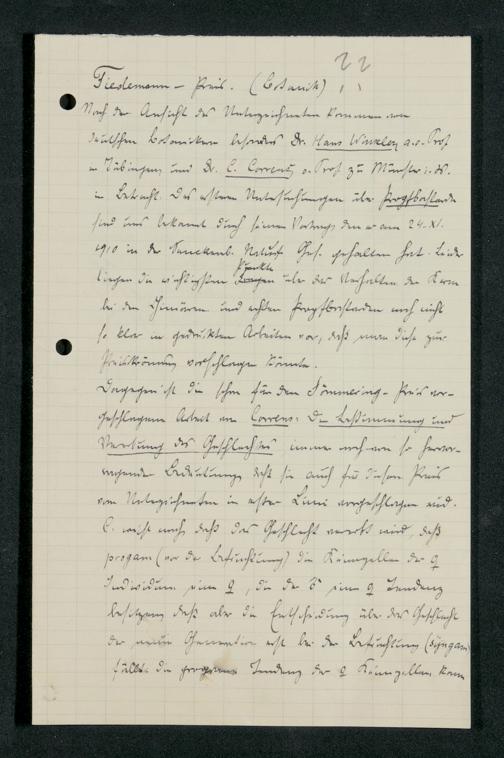 Tiedemann – Preis. (Botanik)
Nach der Ansicht des Unterzeichneten kommen von
deutschen Botanikern besonders Dr. Hans Winkler a.o. Prof
in Tübingen und Dr. C. Correns, o. Prof zu Münster i. W.
in Betracht. Des ersteren Untersuchungen über Propfbastarde
sind uns bekannt durch seinen Vortrag, den er am 24. XI.
1910 in der Senckenb. Naturf Ges. gehalten hat. Leider
liegen die wichtigsten Punkte über das Verhalten der Kerne
bei den Chimären und echten Propfbastarden noch nicht
so klar in gedruckten Arbeiten vor, daß man diese zur
Preiskrönung vorschlagen könnte.
Dagegen ist die schon für den Sömmering-Preis vor-
geschlagene Arbeit von Correns: Die Bestimmung und
Vererbung des Geschlechtes immer noch von so hervor-
ragender Bedeutung, daß sie auch für diesen Preis
vom Unterzeichneten in erster Linie vorgeschlagen wird.
C. weist nach, daß das Geschlecht vererbt wird, daß
progam (vor der Befruchtung) die Keimzellen der ♀
Individuen eine ♀, die der ♂ eine Tendenz
besitzen, daß aber die Entscheidung über das Geschlecht
der neuen Generation erst bei der Befruchtung (syngam)
fällt. die progame Tendenz der ♀ Keimzellen kann